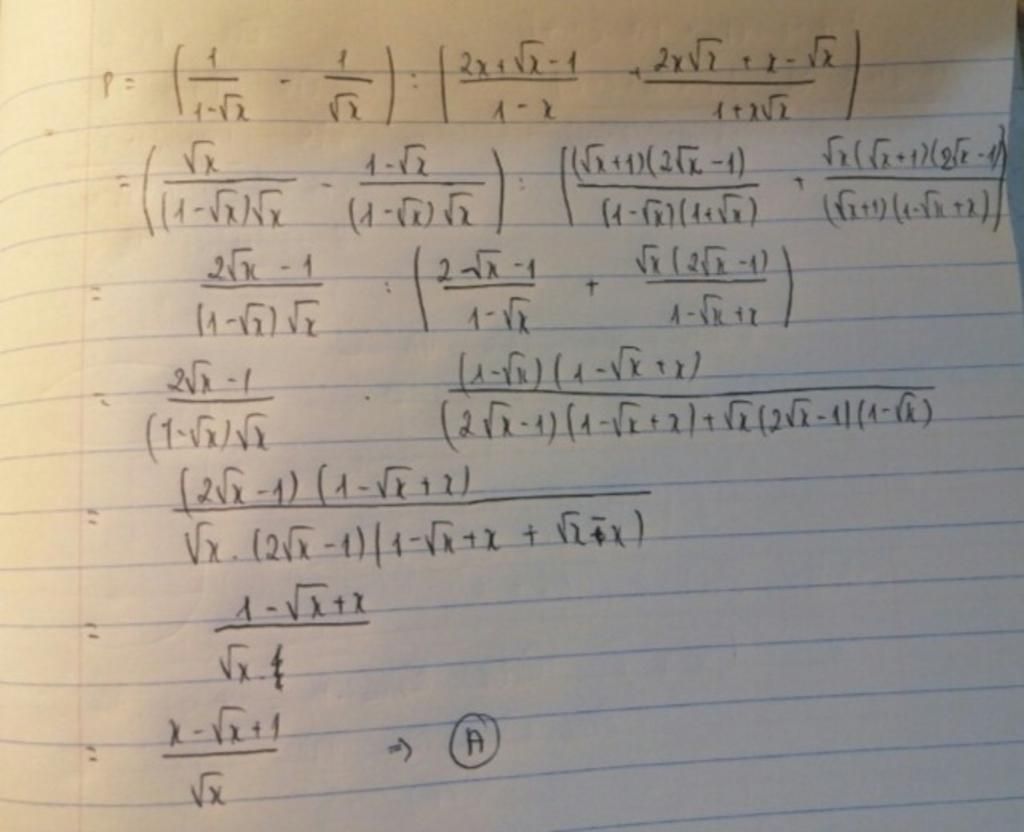 P = (1/(1-√x) - 1/√x) : ((2x+√x-1)/(1-x) + (2x√x + x - √x)/(1+x√x))
= (√x/((1-√x)√x) - (1-√x)/((1-√x)√x)) : (((√x+1)(2√x-1))/((1-√x)(1+√x)) + (√x(√x+1)(2√x-1))/((√x+1)(1-√x+x)))
= (2√x-1)/((1-√x)√x) : ((2√x-1)/(1-√x) + (√x(2√x-1))/(1-√x+x))
= (2√x-1)/((1-√x)√x) . ((1-√x)(1-√x+x))/((2√x-1)(1-√x+x)+√x(2√x-1)(1-√x))
= ((2√x-1)(1-√x+x))/(√x.(2√x-1)(1-√x+x+√x-x))
= (1-√x+x)/(√x.1)
= (x-√x+1)/√x ⇒ A